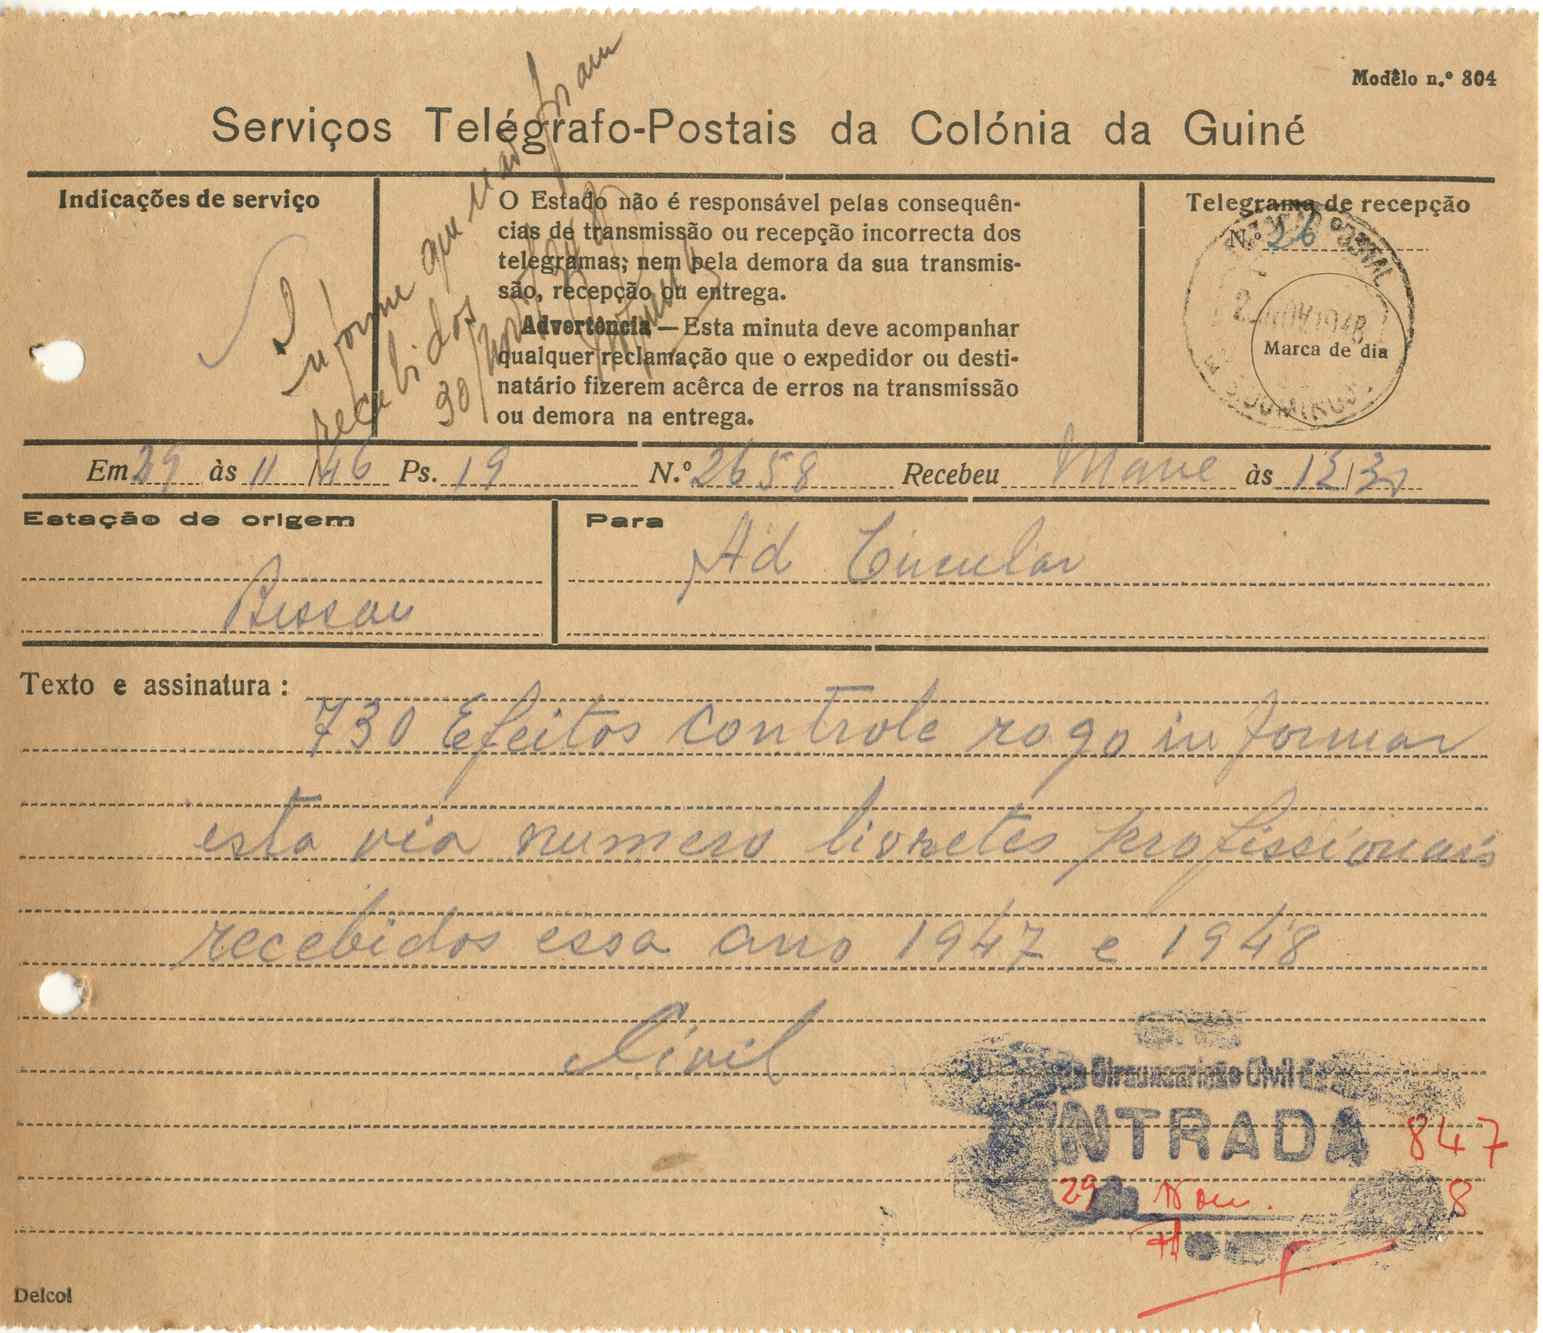 Modêlo n.º 304
Serviços Telégrafo-Postais da Colónia da Guiné
Indicações de serviço
O Estado não é responsável pelas consequên-
cias de transmissão ou recepção incorrecta dos
telegramas; nem pela demora da sua transmis-
são, recepção ou entrega.
Advertência—Esta minuta deve acompanhar
qualquer reclamação que o expedidor ou desti-
natário fizerem acêrca de erros na transmissão
ou demora na entrega.
Telegrama de recepção
N.º 26
POSTAL
NOV 1948
Marca de dia
S. DOMINGOS
Informe que não foram
recebidos
30/Nov
Em 29 às 11/46 Ps. 19 N.º 2658 Recebeu Mané às 12/30
Estação de origem
Bissau
Para
Ad Circular
Texto e assinatura:
730 Efeitos controle rogo informar
esta via numero livretes profissionais
recebidos essa ano 1947 e 1948
Civil
Circunscrição Civil de
ENTRADA 847
29 Nov. 8
Delcol